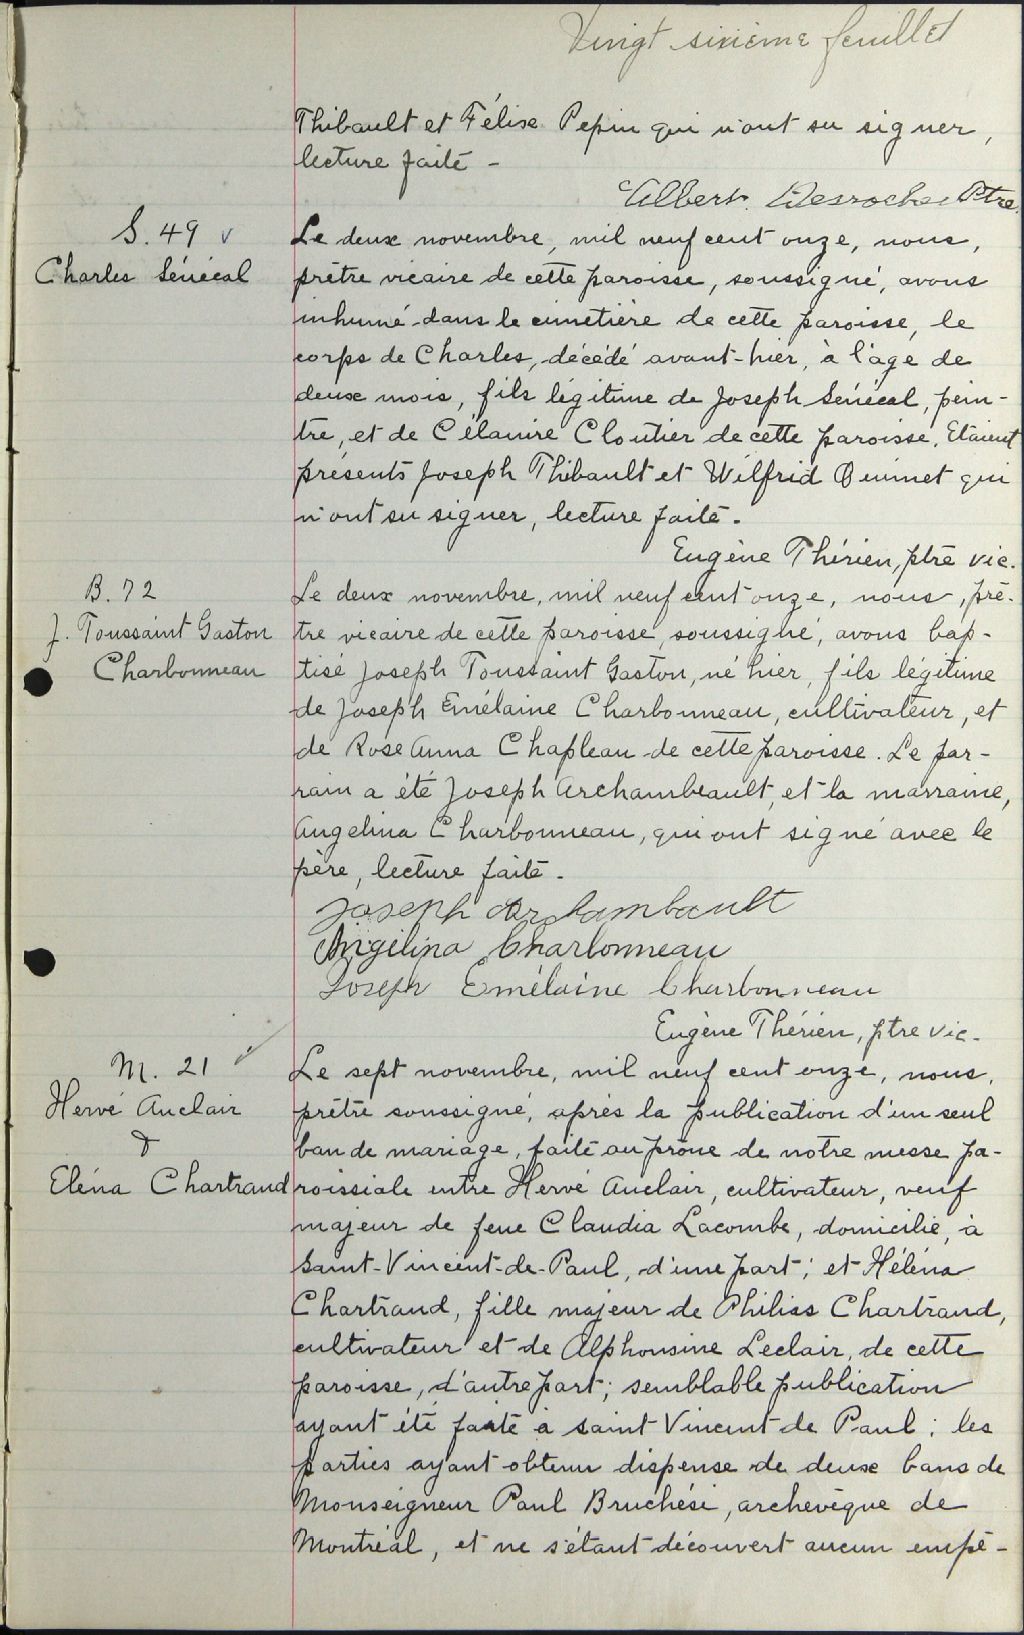 Vingt sixième feuillet
Thibault et Félix Pepin qui n'ont su signer,
lecture faite -
Albert Desroches Ptre.
S. 49 v
Charles Sénécal
Le deux novembre, mil neuf cent onze, nous,
prêtre vicaire de cette paroisse, soussigné, avons
inhumé dans le cimetière de cette paroisse, le
corps de Charles, décédé avant-hier, à l'âge de
deux mois, fils légitime de Joseph Sénécal, pein-
tre, et de Célanire Cloutier de cette paroisse. Etaient
présents Joseph Thibault et Wilfrid Ouimet qui
n'ont su signer, lecture faite.
Eugène Thérien, ptre vic.
B. 72
J. Toussaint Gaston
Charbonneau
Le deux novembre, mil neuf cent onze, nous, prê-
tre vicaire de cette paroisse, soussigné, avons bap-
tisé Joseph Toussaint Gaston, né hier, fils légitime
de Joseph Emélaine Charbonneau, cultivateur, et
de Rose Anna Chapleau de cette paroisse. Le par-
rain a été Joseph Archambeault, et la marraine,
Angelina Charbonneau, qui ont signé avec le
père, lecture faite.
Joseph Archambault
Angelina Charbonneau
Joseph Emélaine Charbonneau
Eugène Thérien, ptre vic.
M. 21 v
Hervé Auclair
&
Eléna Chartrand
Le sept novembre, mil neuf cent onze, nous,
prêtre soussigné, après la publication d'un seul
ban de mariage, faite au prône de notre messe pa-
roissiale entre Hervé Auclair, cultivateur, veuf
majeur de feue Claudia Lacombe, domicilié, à
Saint-Vincent-de-Paul, d'une part; et Héléna
Chartrand, fille majeur de Philias Chartrand,
cultivateur et de Alphonsine Leclair, de cette
paroisse, d'autre part; semblable publication
ayant été faite à saint Vincent de Paul; les
parties ayant obtenu dispense de deux bans de
Monseigneur Paul Bruchési, archevêque de
Montréal, et ne s'étant découvert aucun empê-